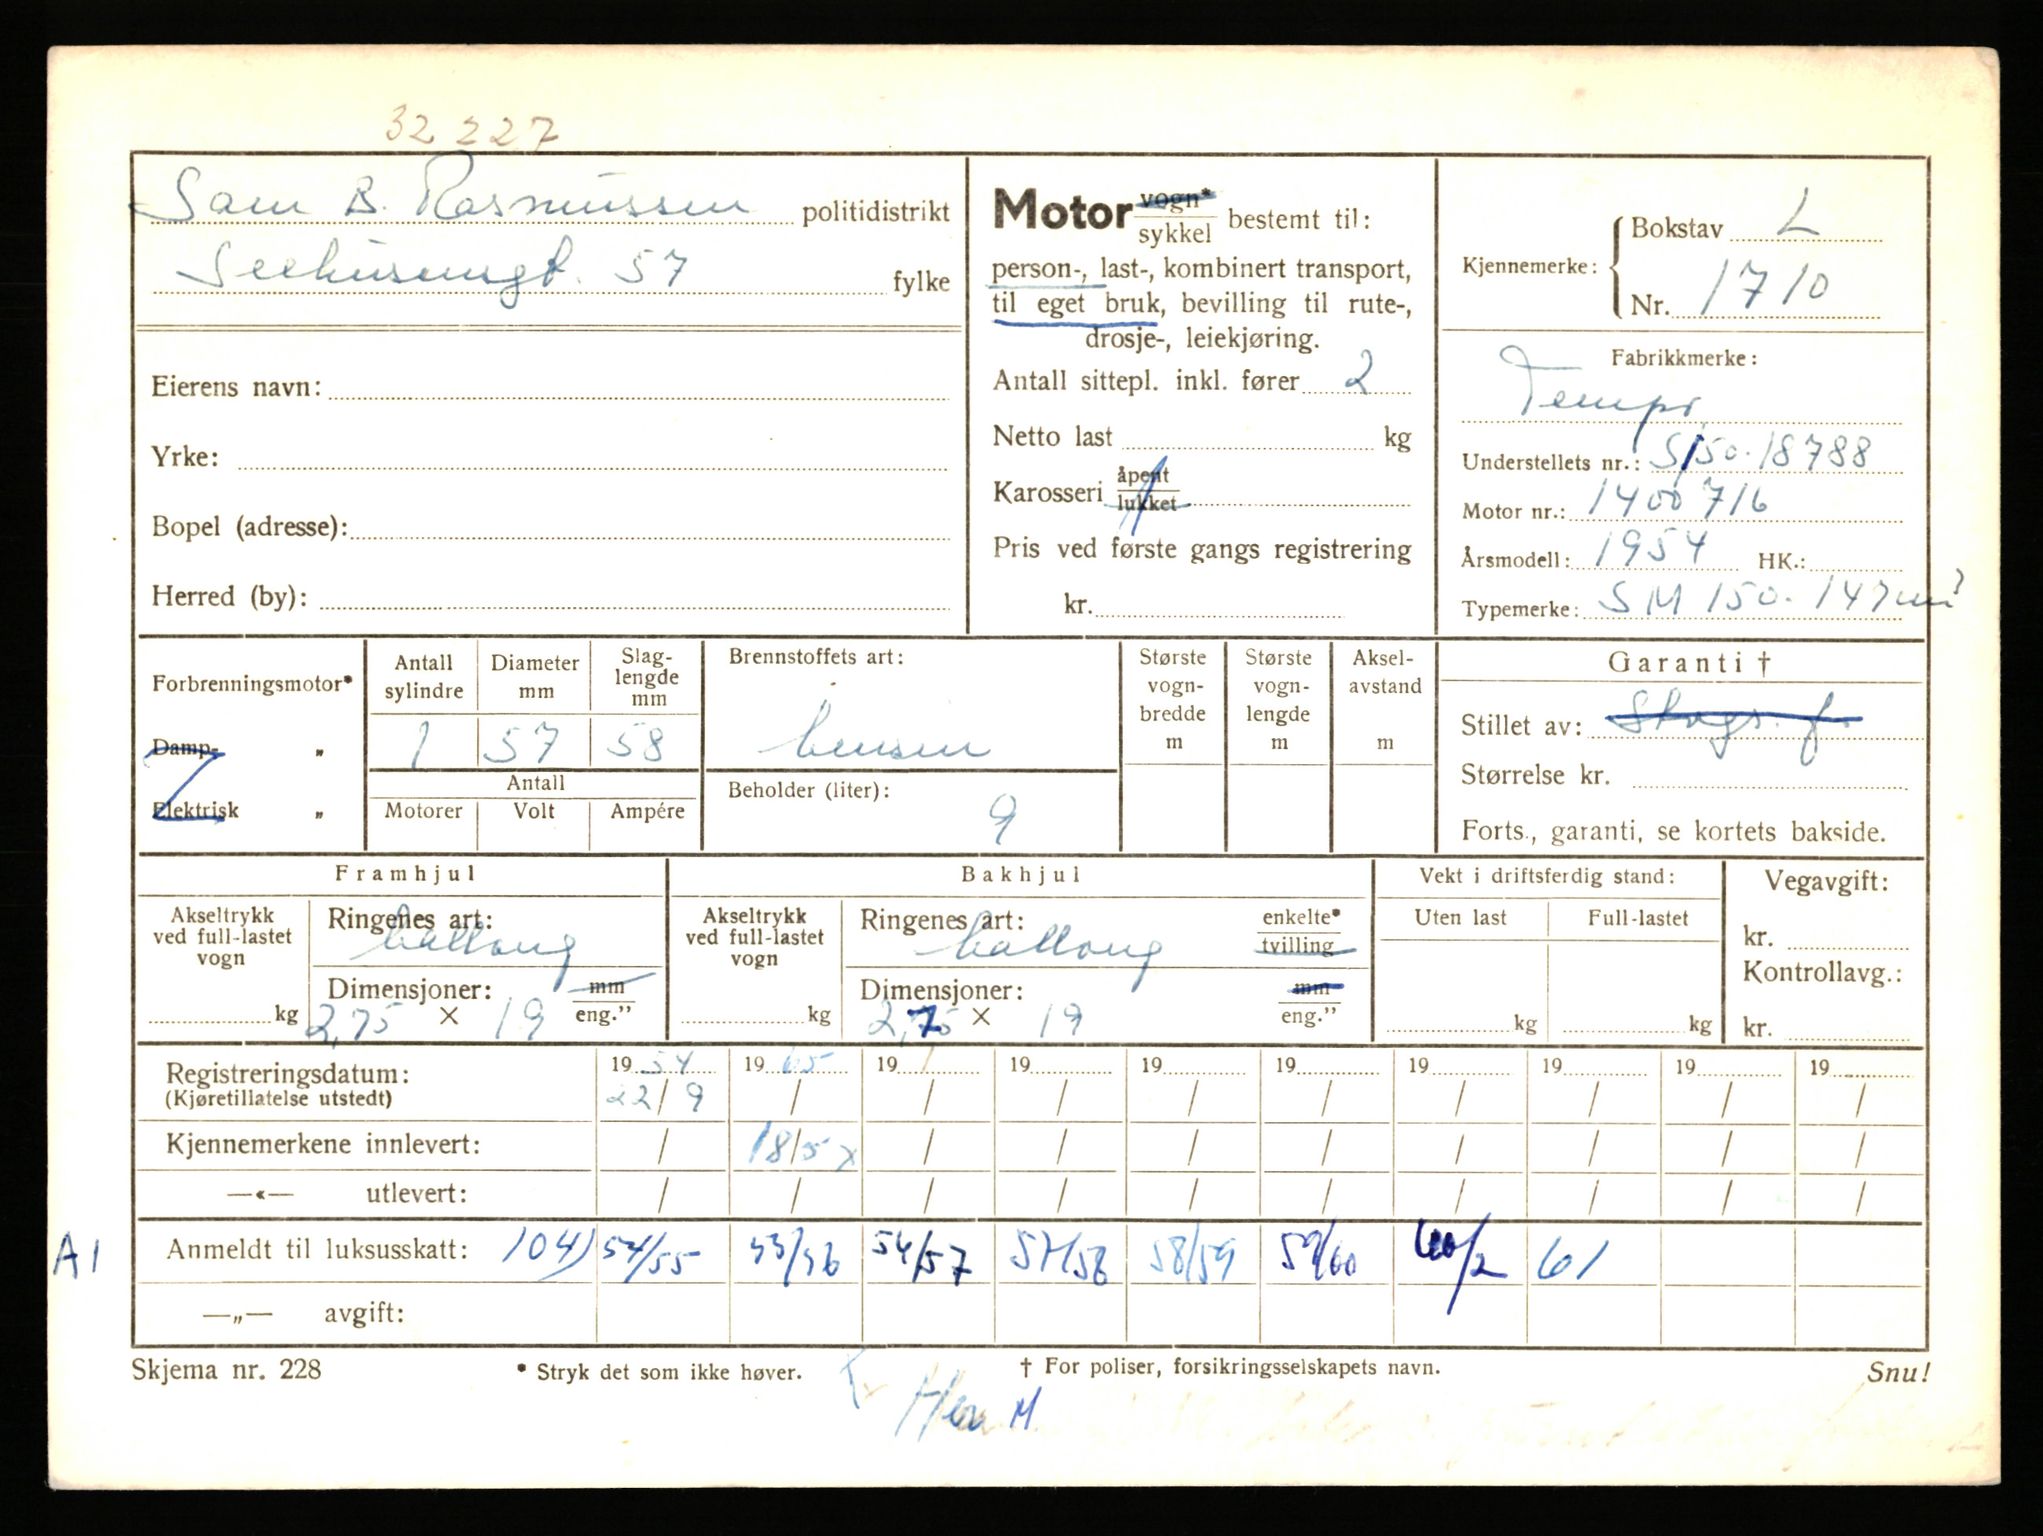 32227
Sam B. Rasmussen politidistrikt
Seehusensgt. 57 fylke
Eierens navn:
Yrke:
Bopel (adresse):
Herred (by):
Motor vogn* / sykkel bestemt til:
person-, last-, kombinert transport,
til eget bruk, bevilling til rute-,
drosje-, leiekjøring.
Antall sittepl. inkl. fører 2
Netto last kg
Karosseri åpent / lukket
Pris ved første gangs registrering
kr.
Kjennemerke: Bokstav L
Nr. 1710
Fabrikkmerke:
Tempo
Understellets nr.: S150.18788
Motor nr.: 1400716
Årsmodell: 1954 HK.:
Typemerke: SM 150. 147 cm³
Forbrenningsmotor*
Damp- „
Elektrisk „
Antall sylindre Diameter mm Slaglengde mm
1 57 58
Antall
Motorer Volt Ampére
Brennstoffets art:
bensin
Beholder (liter):
9
Største vogn-bredde m
Største vogn-lengde m
Aksel-avstand m
Garanti †
Stillet av:
Størrelse kr.
Forts., garanti, se kortets bakside.
Framhjul
Akseltrykk ved full-lastet vogn
kg
Ringenes art: ballong
Dimensjoner: mm / eng.”
2,75 × 19
Bakhjul
Akseltrykk ved full-lastet vogn
kg
Ringenes art: ballong enkelte* / tvilling
Dimensjoner: mm / eng.”
2,75 × 19
Vekt i driftsferdig stand:
Uten last Full-lastet
kg kg
Vegavgift:
kr.
Kontrollavg.:
kr.
Registreringsdatum: 1954 1965 19 19 19 19 19 19 19 19
(Kjøretillatelse utstedt) 22/9 / / / / / / / / /
Kjennemerkene innlevert: / 18/5 x / / / / / / / /
—«— utlevert: / / / / / / / / / /
A1 Anmeldt til luksusskatt: 104) 54/55 55/56 54/57 57/58 58/59 59/60 60/2 61
—„— avgift:
Skjema nr. 228 * Stryk det som ikke høver. † For poliser, forsikringsselskapets navn. Snu!
M